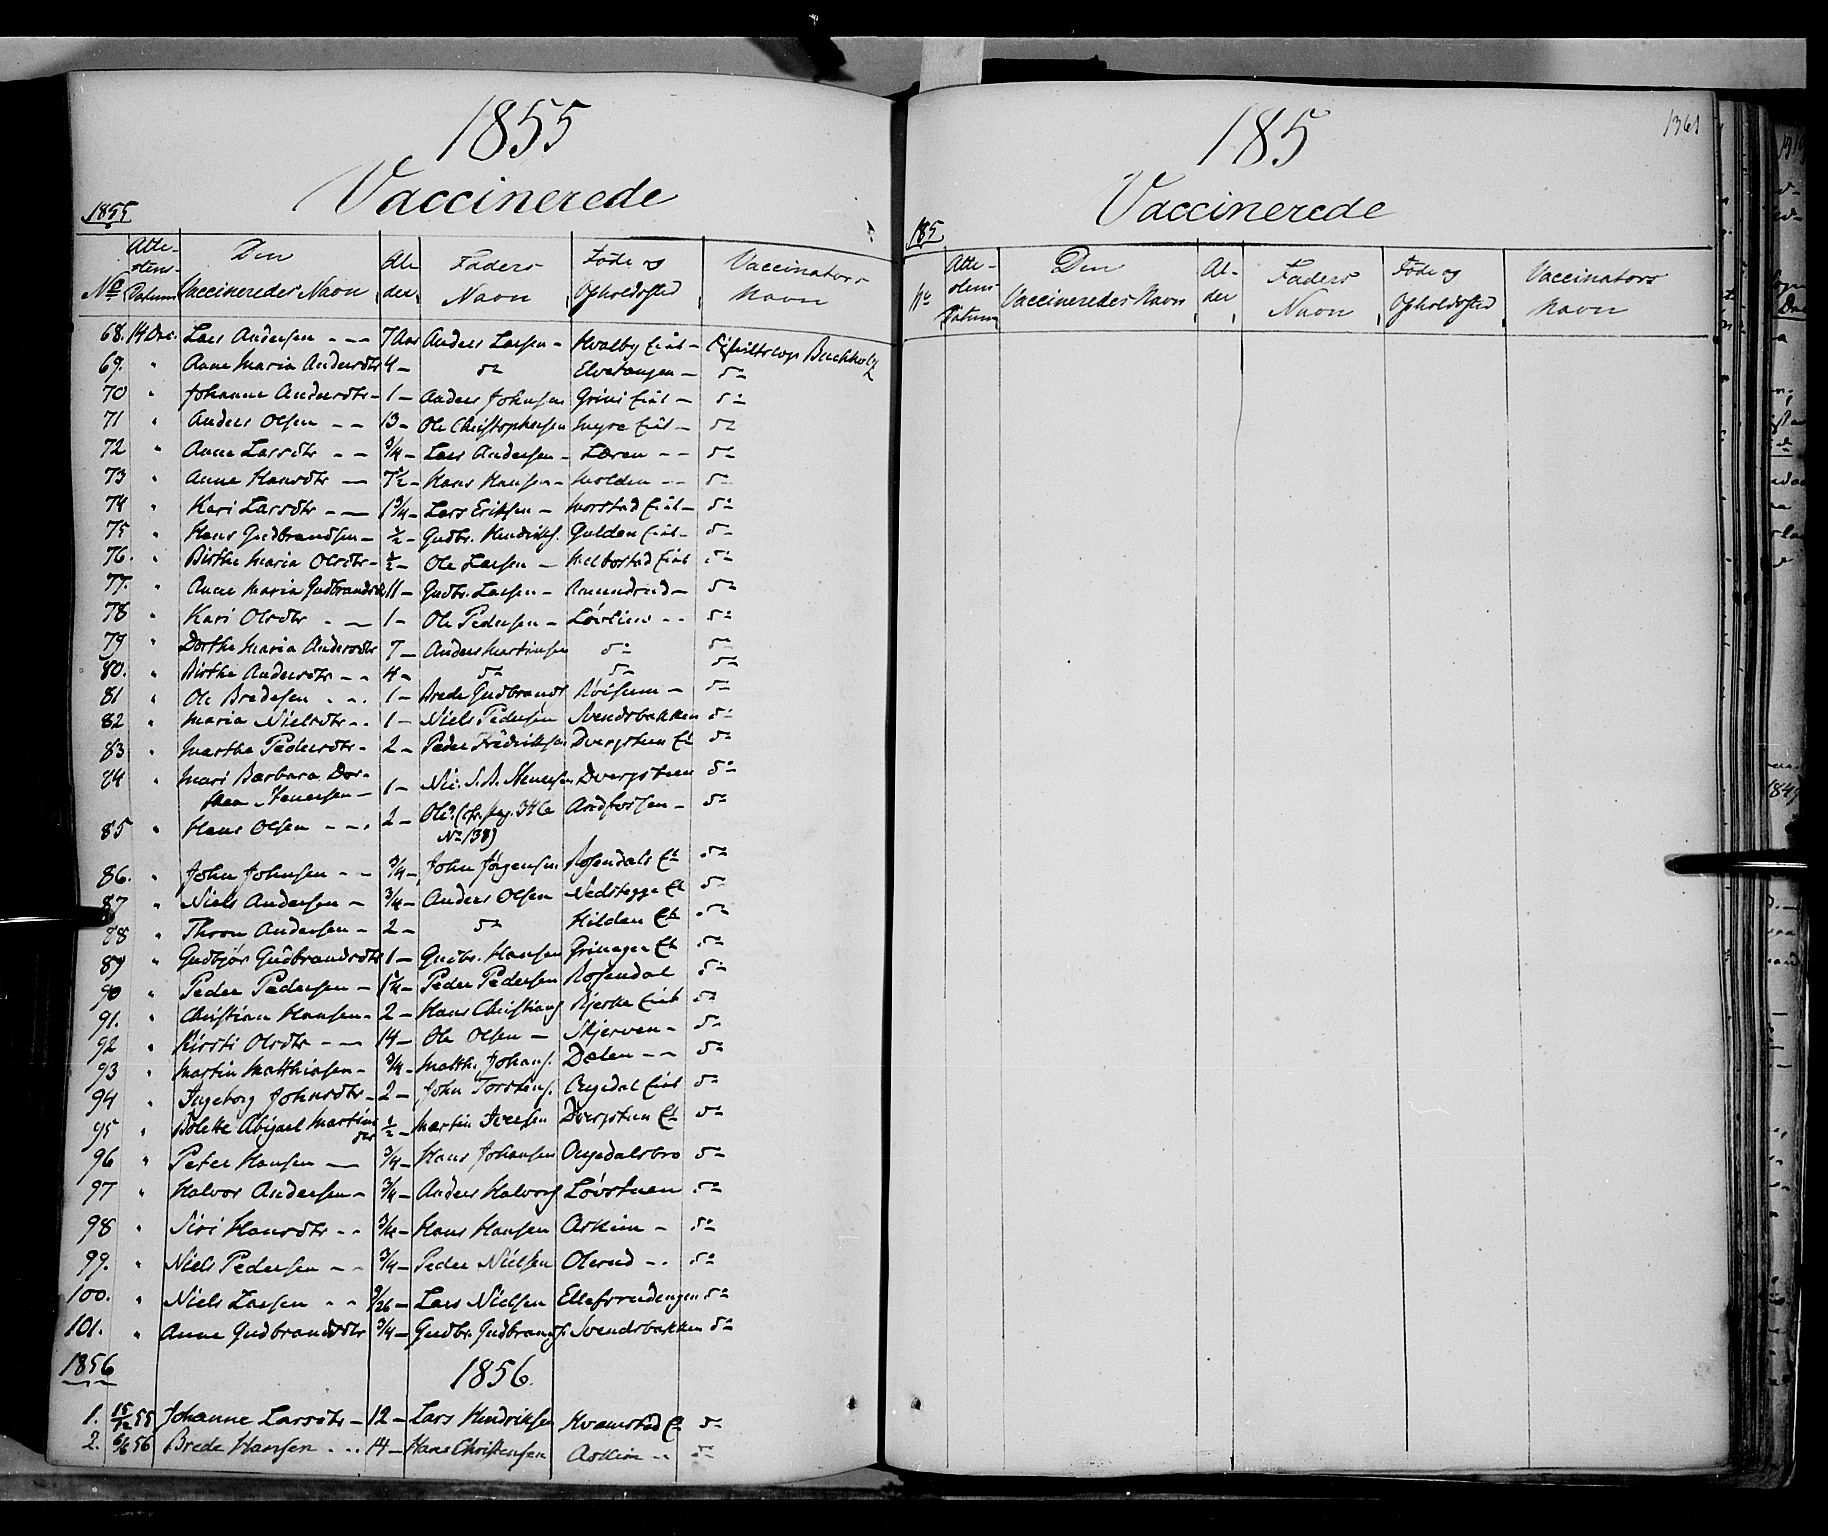 1855
Vaccinerede
1855
No Atte-stens-Datum Den Vaccineredes Navn Al-der Faders Navn Føde og Opholdssted Vaccinators Navn
68. 14 Dec. Lars Andersen - - - 7 Aar Anders Larsen - Hvalby Eiet - Buchholz
69. " Anne Maria Andersdtr 4 - do Elvetangen - do
70 " Johanne Andersdtr - 1 - Anders Johnsen Grini Eiet - do
71 " Anders Olsen - - 13 - Ole Christophersen Myre Eiet - do
72 " Anne Larsdtr - - 3/4 - Lars Andersen - Læren - - do
73 " Anne Hansdtr - 7 1/2 - Hans Hansen - Molden - - do
74 " Kari Larsdtr - - 1 3/4 - Lars Eriksen - Morstad Eiet - do
75 " Hans Gudbrandsen - 1/2 - Gudbr. Hendriks. Gulden Eiet - do
76. " Birthe Maria Olsdtr - 1/2 - Ole Larsen - Melbostad Eiet do
77. " Anne Maria Gudbrandsdtr 11 - Gudbr. Larsen - Amundrud - do
78 " Kari Olsdtr - - 1 - Ole Pedersen - Løvlien - - do
79 " Dorthe Maria Andersdtr 7 - Anders Martinsen do do
80. " Birthe Andersdtr - - 4 - do do do
81 " Ole Bredesen - - 1 - Brede Gudbrands Røisum - do
82 " Maria Nielsdtr - - 1 - Niels Pedersen Svendsbakken do
83 " Marthe Pedersdtr - 2 - Peder Fredriksen Dvergsteen Et do
84 " Mari Barbara Dor-
thea Stenersen - 1 - Nic. S. A. Stenersen Dvergsteen do
85 " Hans Olsen - - - 2 - Ole? (cfr. pag. 346 Andfossen - do
No 138)
86. " John Johnsen - - 3/4 - John Jørgensen Rosendals Et do
87 " Niels Andersen - 3/4 - Anders Olsen Nedstegge Et do
88 " Thron Andersen - 2 - do Hilden Et do
89 " Gudbjør Gudbrandsdtr 1 - Gudbr. Hansen Grinager Et do
90 " Peder Pedersen - 1 1/4 - Peder Pedersen Rosendal do
91. " Christian Hansen - 2 - Hans Christians Bjerke Eiet do
92 " Kirsti Olsdtr - - 14 - Ole Olsen - Skjerven - do
93 " Martin Matthiasen - 3/4 - Matth. Johans. Dalen - - do
94 " Ingeborg Johnsdtr - 2 - John Torstens. Augedal Eiet do
95 " Bolette Abigael Martins
dtr 1/2 - Martin Iversen Dvergsteen Et do
96 " Peter Hansen - 3/4 - Hans Johansen Augedalsbro do
97 " Halvor Andersen - 3/4 - Anders Halvors Løvstuen do
98 " Siri Hansdtr - - 3/4 - Hans Hansen Askim - do
99. " Niels Pedersen - - 3/4 - Peder Nielsen Olerud - - do
100. " Niels Larsen - - 9/26 - Lars Nielsen Ellefsrudengen do
101. " Anne Gudbrandsdtr 3/4 - Gudbr. Gudbrands. Svendsbakken do
1856 1856.
1. 15/12 55 Johanne Larsdtr - 12 - Lars Hendriksen Kvamstad Et do
2. 6/6 56 Brede Hansen - - - 14 - Hans Christensen Askim - - do
1361
185
Vaccinerede
185
No Atte-stens-Datum Den Vaccineredes Navn Al-der Faders Navn Føde og Opholdssted Vaccinators Navn